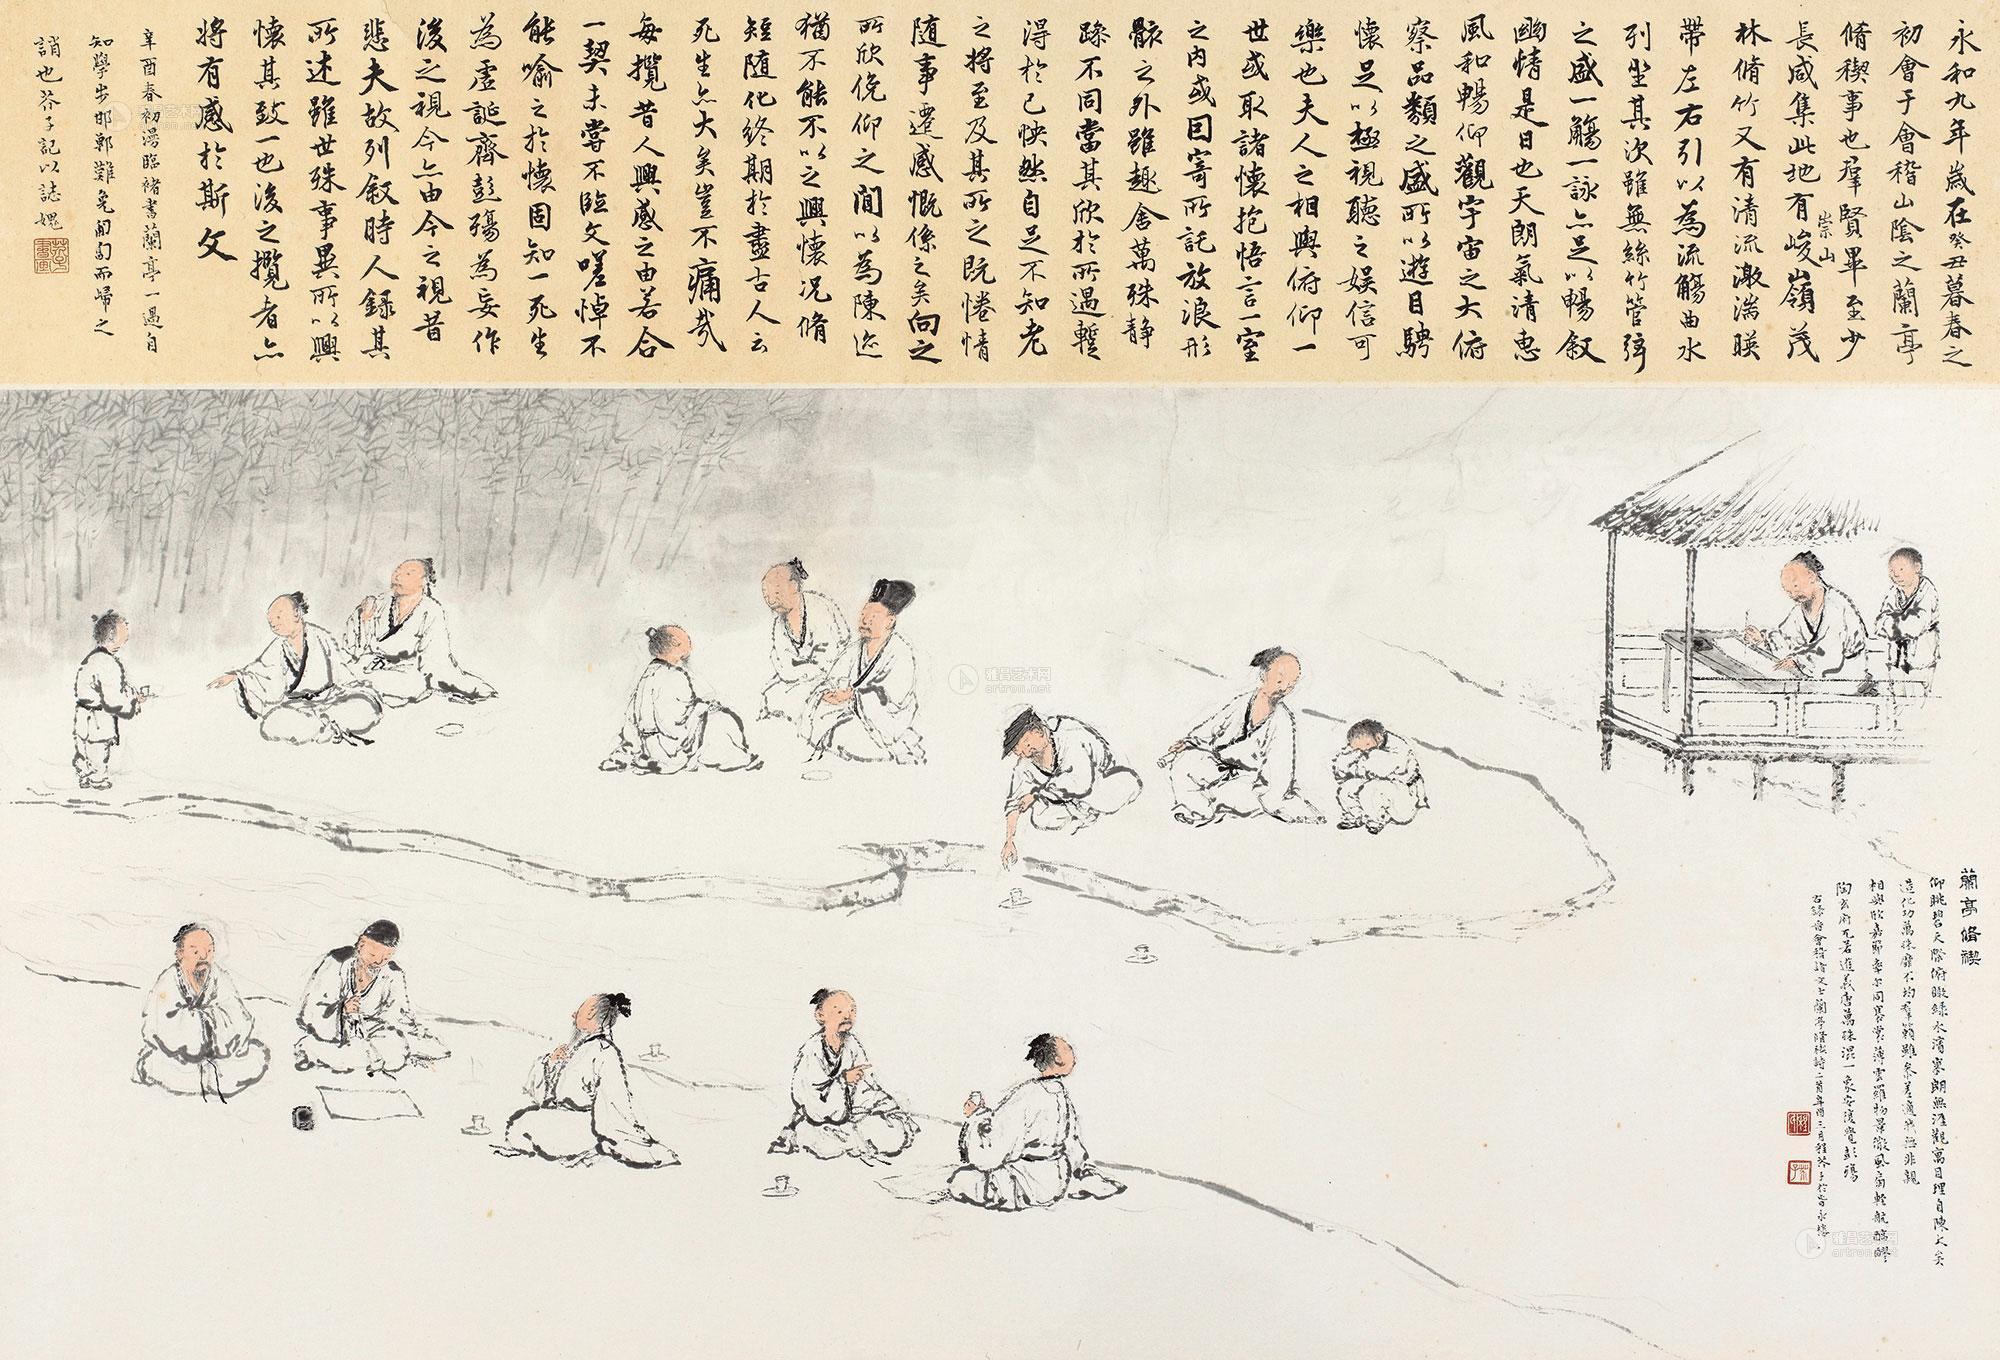 永和九年歲在癸丑暮春之
初會于會稽山陰之蘭亭
脩稧事也羣賢畢至少
長咸集此地有峻嶺茂
崇山
林脩竹又有清流激湍暎
帶左右引以為流觴曲水
列坐其次雖無絲竹管弦
之盛一觴一詠亦足以暢叙
幽情是日也天朗氣清惠
風和暢仰觀宇宙之大俯
察品類之盛所以遊目騁
懷足以極視聽之娛信可
樂也夫人之相與俯仰一
世或取諸懷抱悟言一室
之內或因寄所託放浪形
骸之外雖趣舍萬殊静
躁不同當其欣於所遇蹔
得於己怏然自足不知老
之將至及其所之既惓情
随事遷感慨係之矣向之
所欣俛仰之閒以為陳迹
猶不能不以之興懷况脩
短随化終期於盡古人云
死生亦大矣豈不痛哉
每攬昔人興感之由若合
一契未嘗不臨文嗟悼不
能喻之於懷固知一死生
為虛誕齊彭殤為妄作
後之視今亦由今之視昔
悲夫故列叙時人録其
所述雖世殊事異所以興
懷其致一也後之攬者亦
將有感於斯文
辛酉春初漫臨褚書蘭亭一過自
知學步邯鄲難免匍匐而歸之
誚也芥子記以誌媿
蘭亭脩禊
仰眺碧天際俯瞰綠水濱寥朗無涯觀寓目理自陳大矣
造化功萬殊靡不均羣籟雖參差適我無非親
相與欣嘉節率尔同褰裳薄雲羅物景微風扇輕航醇醪
陶玄府兀若遊羲唐萬殊混一象安復覺彭殤
右録晉會稽諸文士蘭亭脩禊詩二首辛酉三月程芥子於晉永塼
雅昌艺术网
artron.net
雅昌艺术网
artron.net